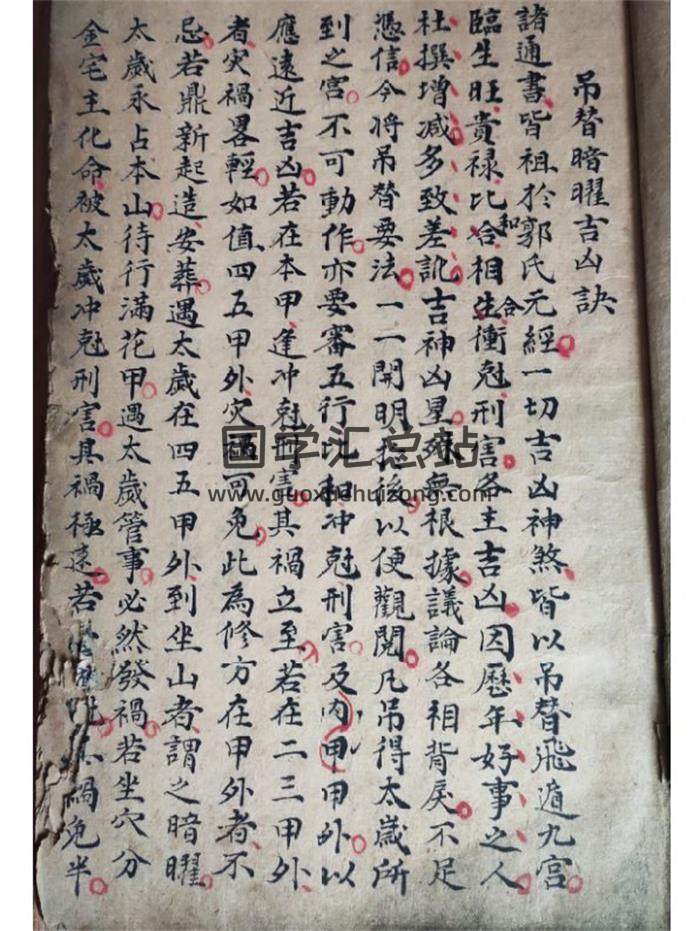 吊替暗曜吉凶訣
諸通書皆祖於郭氏元經一切吉凶神煞皆以吊替飛遁九宮
臨生旺貴禄比和合相生合衝尅刑害各主吉凶因歷年好事之人
杜撰增减多致差訛吉神凶星殊無根據議論各相背戾不足
憑信今將吊替要法一一開明於後以便觀閱凡吊得太歲所
到之宮不可動作亦要審五行比和冲尅刑害及内甲甲外以
應遠近吉凶若在本甲逢冲尅刑害其禍立至若在二三甲外
者灾禍畧輕如值四五甲外灾禍可免此為修方在甲外者不
忌若鼎新起造安葬遇太歲在四五甲外到坐山者謂之暗曜
太歲永占本山待行滿花甲遇太歲管事必然發禍若坐穴分
金宅主化命被太歲冲尅刑害其禍極速若禍免半
国学汇总站
www.guoxuehuizong.com